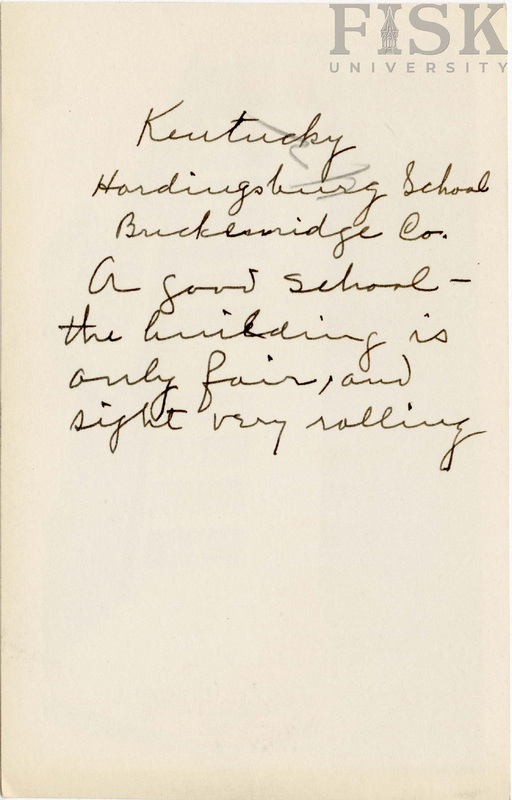 FISK
UNIVERSITY
Kentucky
Hardingsburg School
Breckenridge Co.
A good school —
the building is
only fair, and
sight very rolling